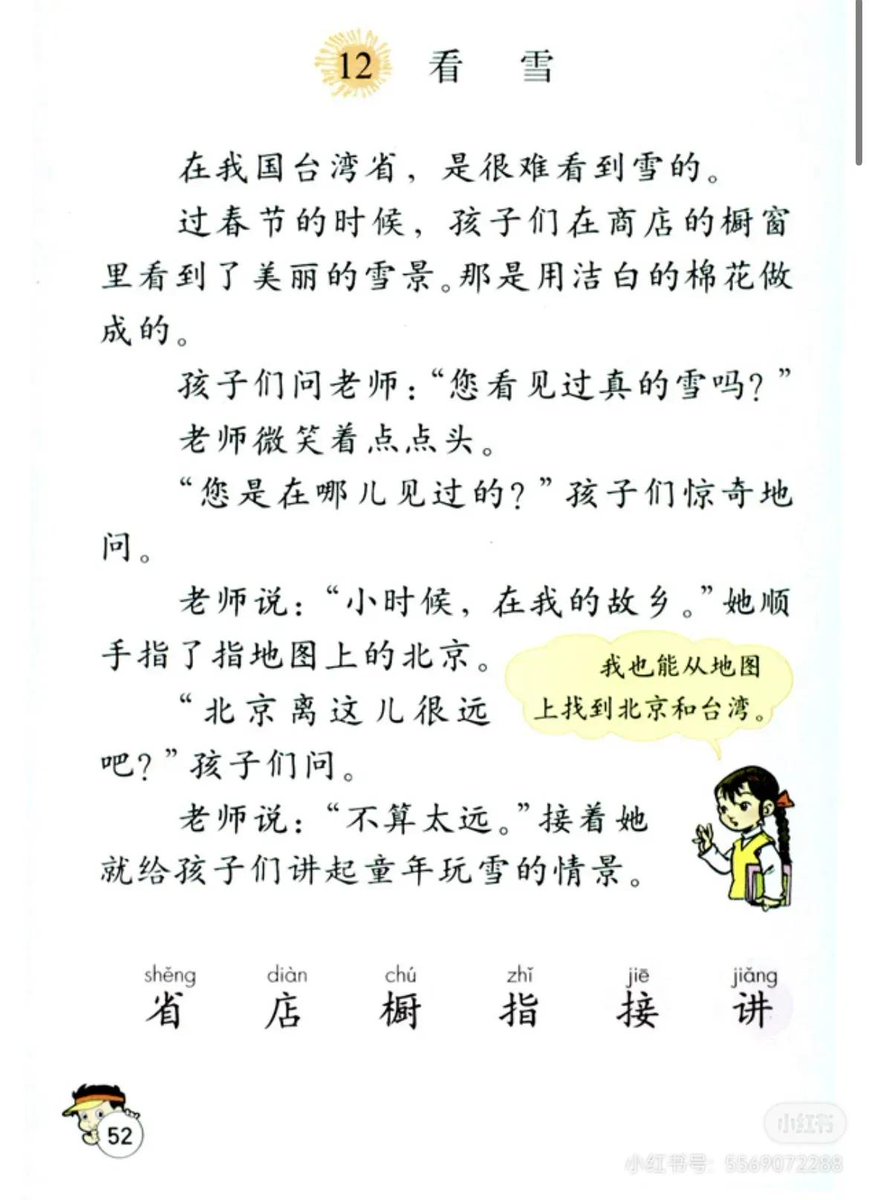 12 看 雪
在我国台湾省，是很难看到雪的。
过春节的时候，孩子们在商店的橱窗
里看到了美丽的雪景。那是用洁白的棉花做
成的。
孩子们问老师：“您看见过真的雪吗？”
老师微笑着点点头。
“您是在哪儿见过的？”孩子们惊奇地
问。
老师说：“小时候，在我的故乡。”她顺
手指了指地图上的北京。
我也能从地图
上找到北京和台湾。
“北京离这儿很远
吧？”孩子们问。
老师说：“不算太远。”接着她
就给孩子们讲起童年玩雪的情景。
shěng diàn chú zhǐ jiē jiǎng
省 店 橱 指 接 讲
52
小红书
小红书号：5569072288